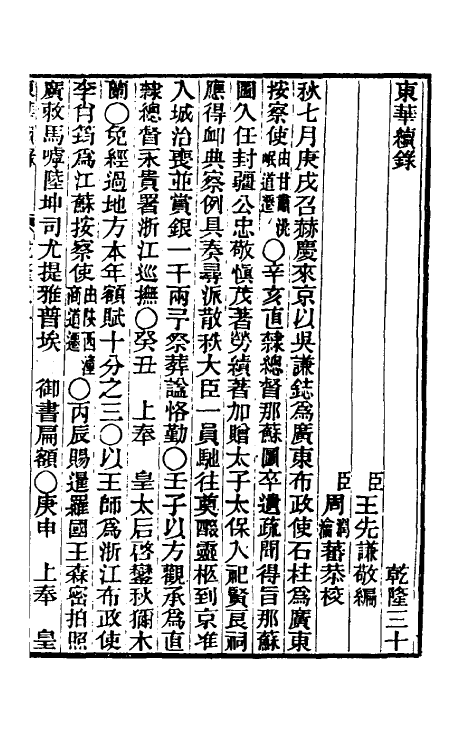 東華續錄　乾隆三十
臣王先謙敬編
臣周潤蕃周瀹蕃恭校
秋七月庚戌召赫慶來京以吳謙鋕爲廣東布政使石柱爲廣東
按察使由甘肅洮岷道遷○辛亥直隸總督那蘇圖卒遺疏聞得旨那蘇
圖久任封疆公忠敬愼茂著勞績著加贈太子太保入祀賢良祠
應得卹典察例具奏尋派散秩大臣一員馳往奠醊靈柩到京准
入城治喪並賞銀一千兩予祭葬諡恪勤○壬子以方觀承爲直
隸總督永貴署浙江巡撫○癸丑　上奉　皇太后啓鑾秋獮木
蘭○免經過地方本年額賦十分之三○以王師爲浙江布政使
李肖筠爲江蘇按察使由陝西潼商道遷○丙辰賜暹羅國王森密拍照
廣敕馬嘑陸坤司尤提雅普埃　御書扁額○庚申　上奉　皇